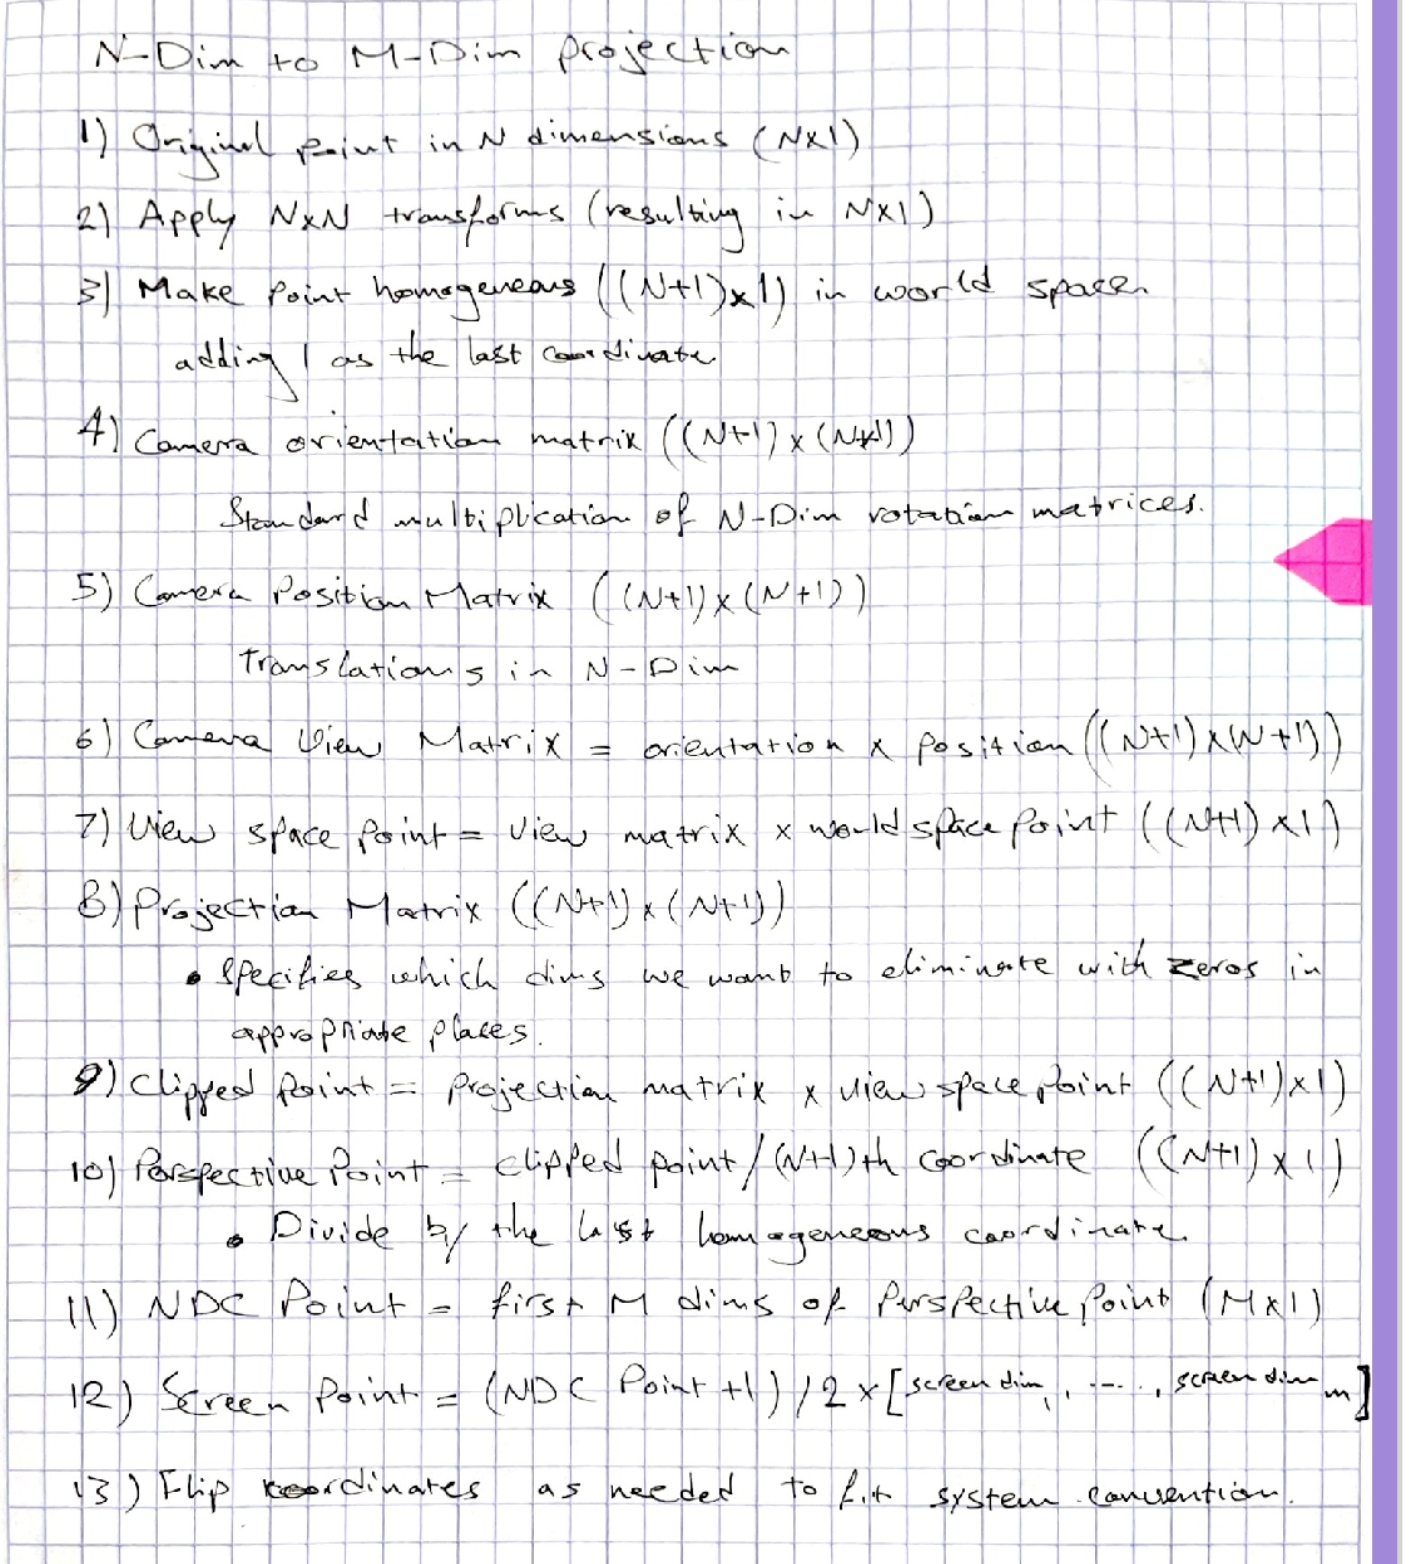 N-Dim to M-Dim projection
1) Original point in N dimensions (Nx1)
2) Apply NxN transforms (resulting in Nx1)
3) Make Point homogeneous ((N+1)x1) in world space.
adding 1 as the last coordinate
4) Camera orientation matrix ((N+1)x(N+1))
Standard multiplication of N-Dim rotation matrices.
5) Camera Position Matrix ((N+1)x(N+1))
Translations in N-Dim
6) Camera View Matrix = orientation x position ((N+1)x(N+1))
7) View space Point = View matrix x world space point ((N+1)x1)
8) Projection Matrix ((N+1)x(N+1))
• Specifies which dims we want to eliminate with zeros in
appropriate places.
9) Clipped Point = Projection matrix x view space point ((N+1)x1)
10) Perspective Point = clipped point/(N+1)th coordinate ((N+1)x1)
• Divide by the last homogeneous coordinate.
11) NDC Point = first M dims of Perspective Point (Mx1)
12) Screen Point = (NDC Point +1)/2 x [screen dim1, ...., screen dim m]
13) Flip coordinates as needed to fit system convention.